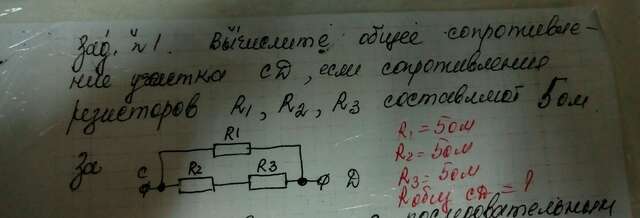 Зад. №1. Вычислите общее сопротивле-
ние участка СД, если сопротивление
резисторов R1, R2, R3 составляют 5 ом.
R1
R1 = 5 ом
R2 = 5 ом
За
С
R2
R3
Д
R3 = 5 ом
R общ СД = ?
последовательным